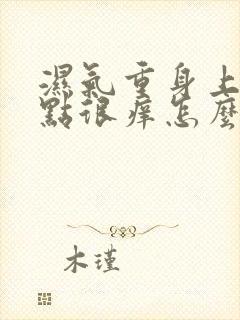 濕氣重身上
點很癢怎麼
木瑾